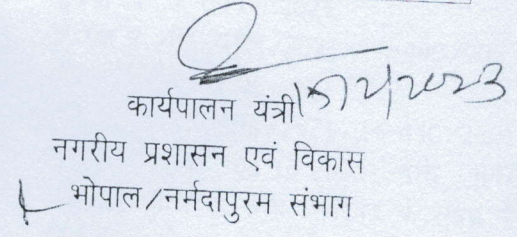 कार्यपालन यंत्री
नगरीय प्रशासन एवं विकास
भोपाल/नर्मदापुरम संभाग